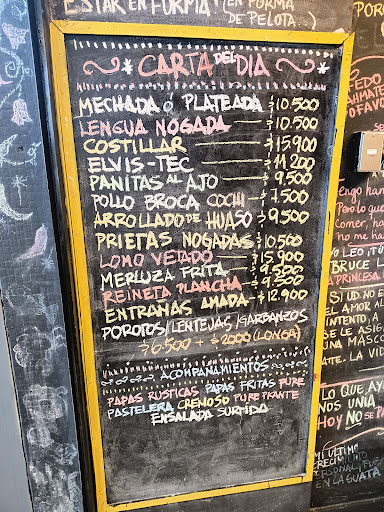 ESTAR EN FORMA! (EN FORMA
DE PELOTA)
CARTA DEL DIA
MECHADA Ó PLATEADA $10.500
LENGUA NOGADA $10.500
COSTILLAR $15.900
ELVIS-TEC $11.200
PANITAS AL AJO $9.500
POLLO BROCA COCHI $7.500
ARROLLADO DE HUASO $9.500
PRIETAS NOGADAS $10.500
LOMO VETADO $15.900
MERLUZA FRITA $9.500
REINETA PLANCHA $9.500
ENTRAÑAS AMADA $12.900
POROTOS/LENTEJAS/GARBANZOS
$6.500 + $2000 (LONGA)
ACOMPAÑAMIENTOS
PAPAS RUSTICAS PAPAS FRITAS PURE
PASTELERA CREMOSO PURE PICANTE
ENSALADA SURTIDA
Tengo ham
Pero lo que
Comer, ha
no me ha
LEO ¡TÚ
BRUCE L
PRINCESA
SI UD. NO E
EL AMOR AL
INTENTO, A
SE LE ASIG
UNA MASCO
ATE. LA VID
LO QUE AY
NOS UNIA
HOY NO SE PA
MI ÚLTIMO
EN LA GUATA